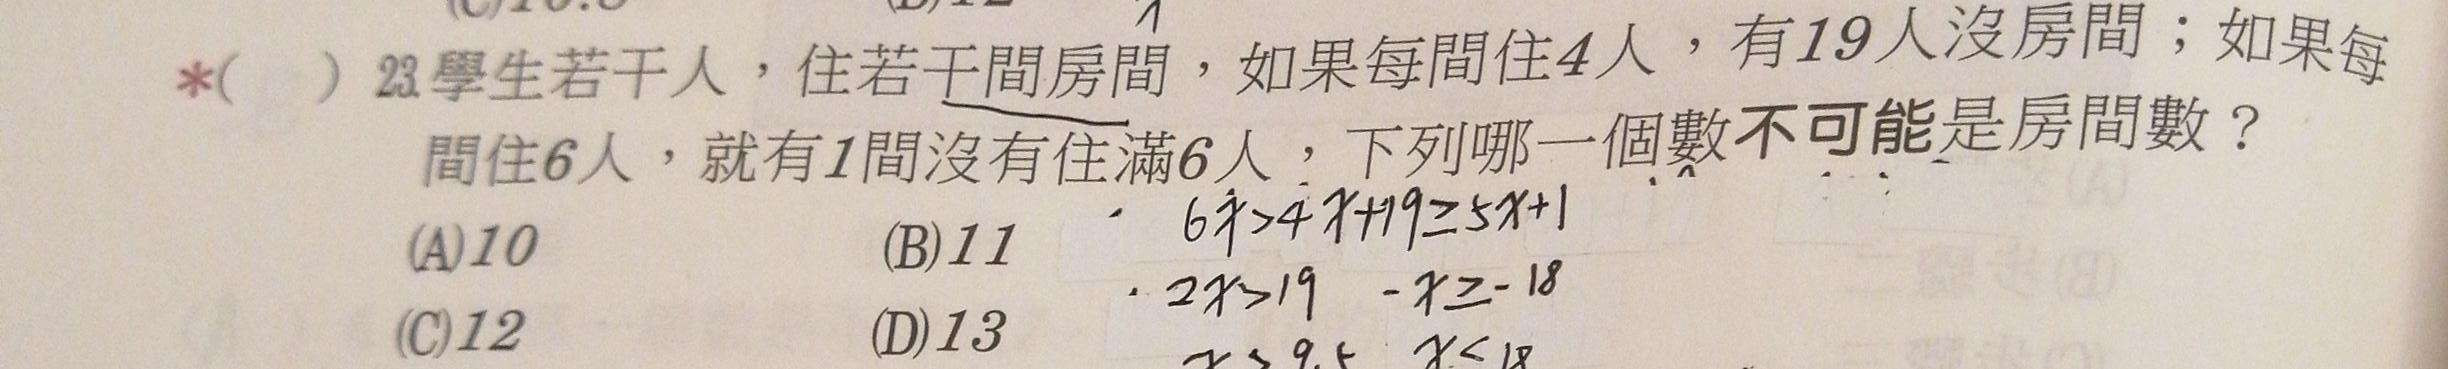 *(　) 23.學生若干人，住若干間房間，如果每間住4人，有19人沒房間；如果每
間住6人，就有1間沒有住滿6人，下列哪一個數不可能是房間數？
(A)10
(B)11
(C)12
(D)13
6x>4x+19≥5x+1
2x>19 -x≥-18